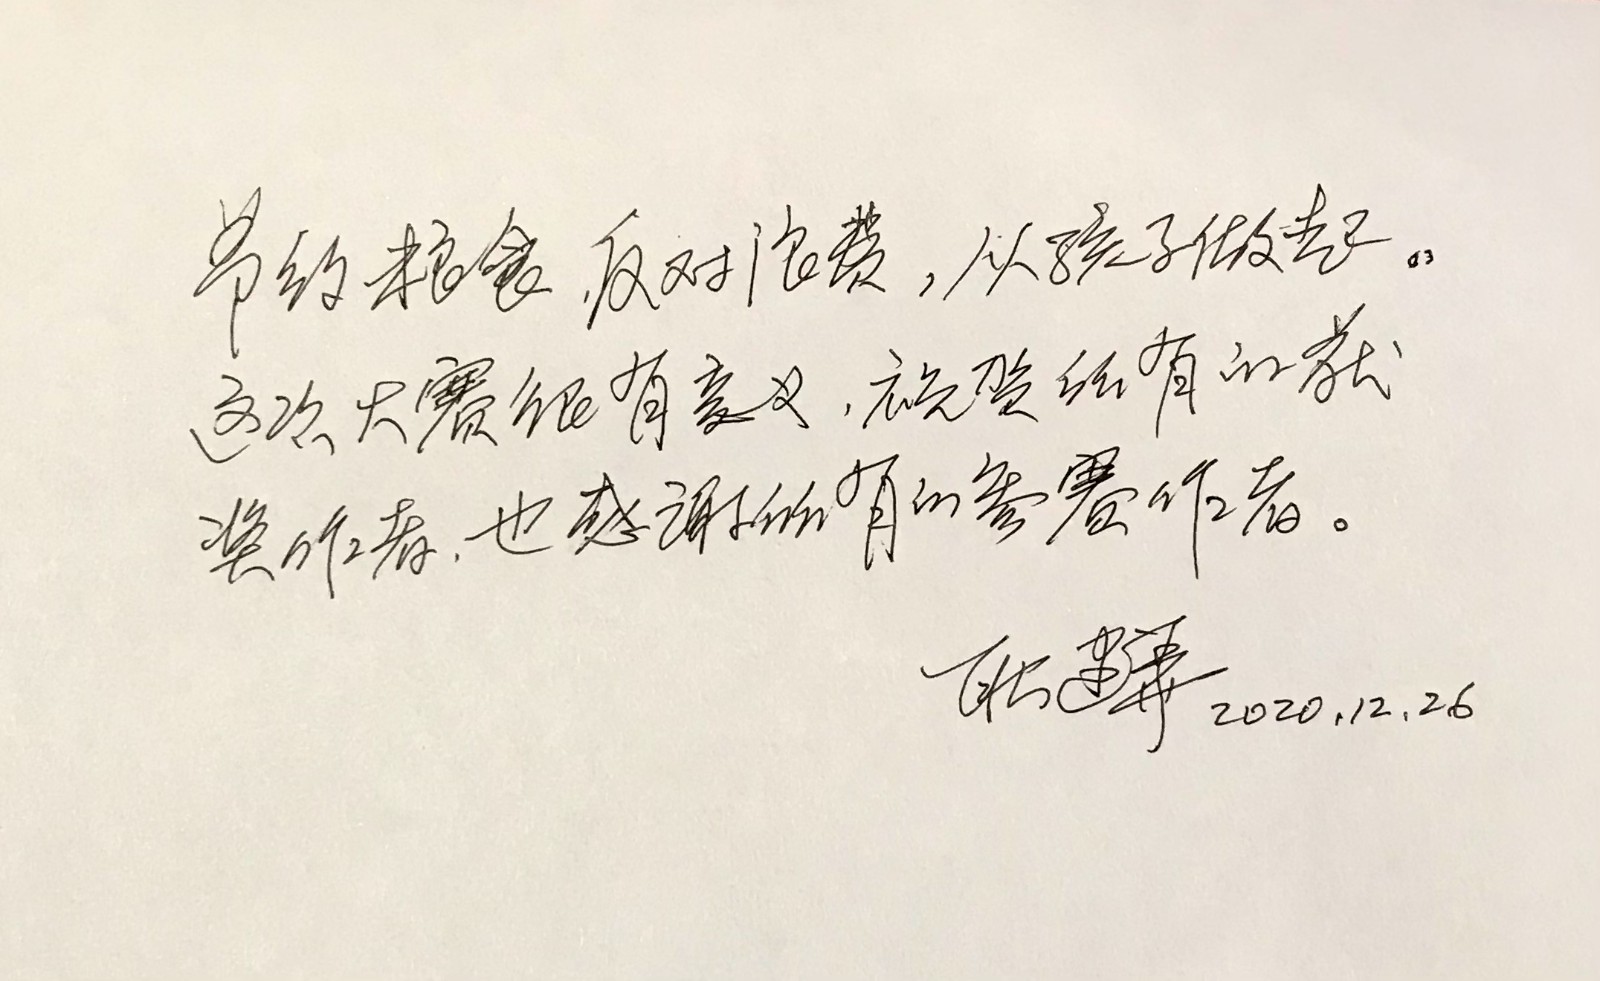 节约粮食,反对浪费,从孩子做起。
这次大赛很有意义,祝贺所有的获
奖作者,也感谢所有的参赛作者。
耿建华 2020.12.26